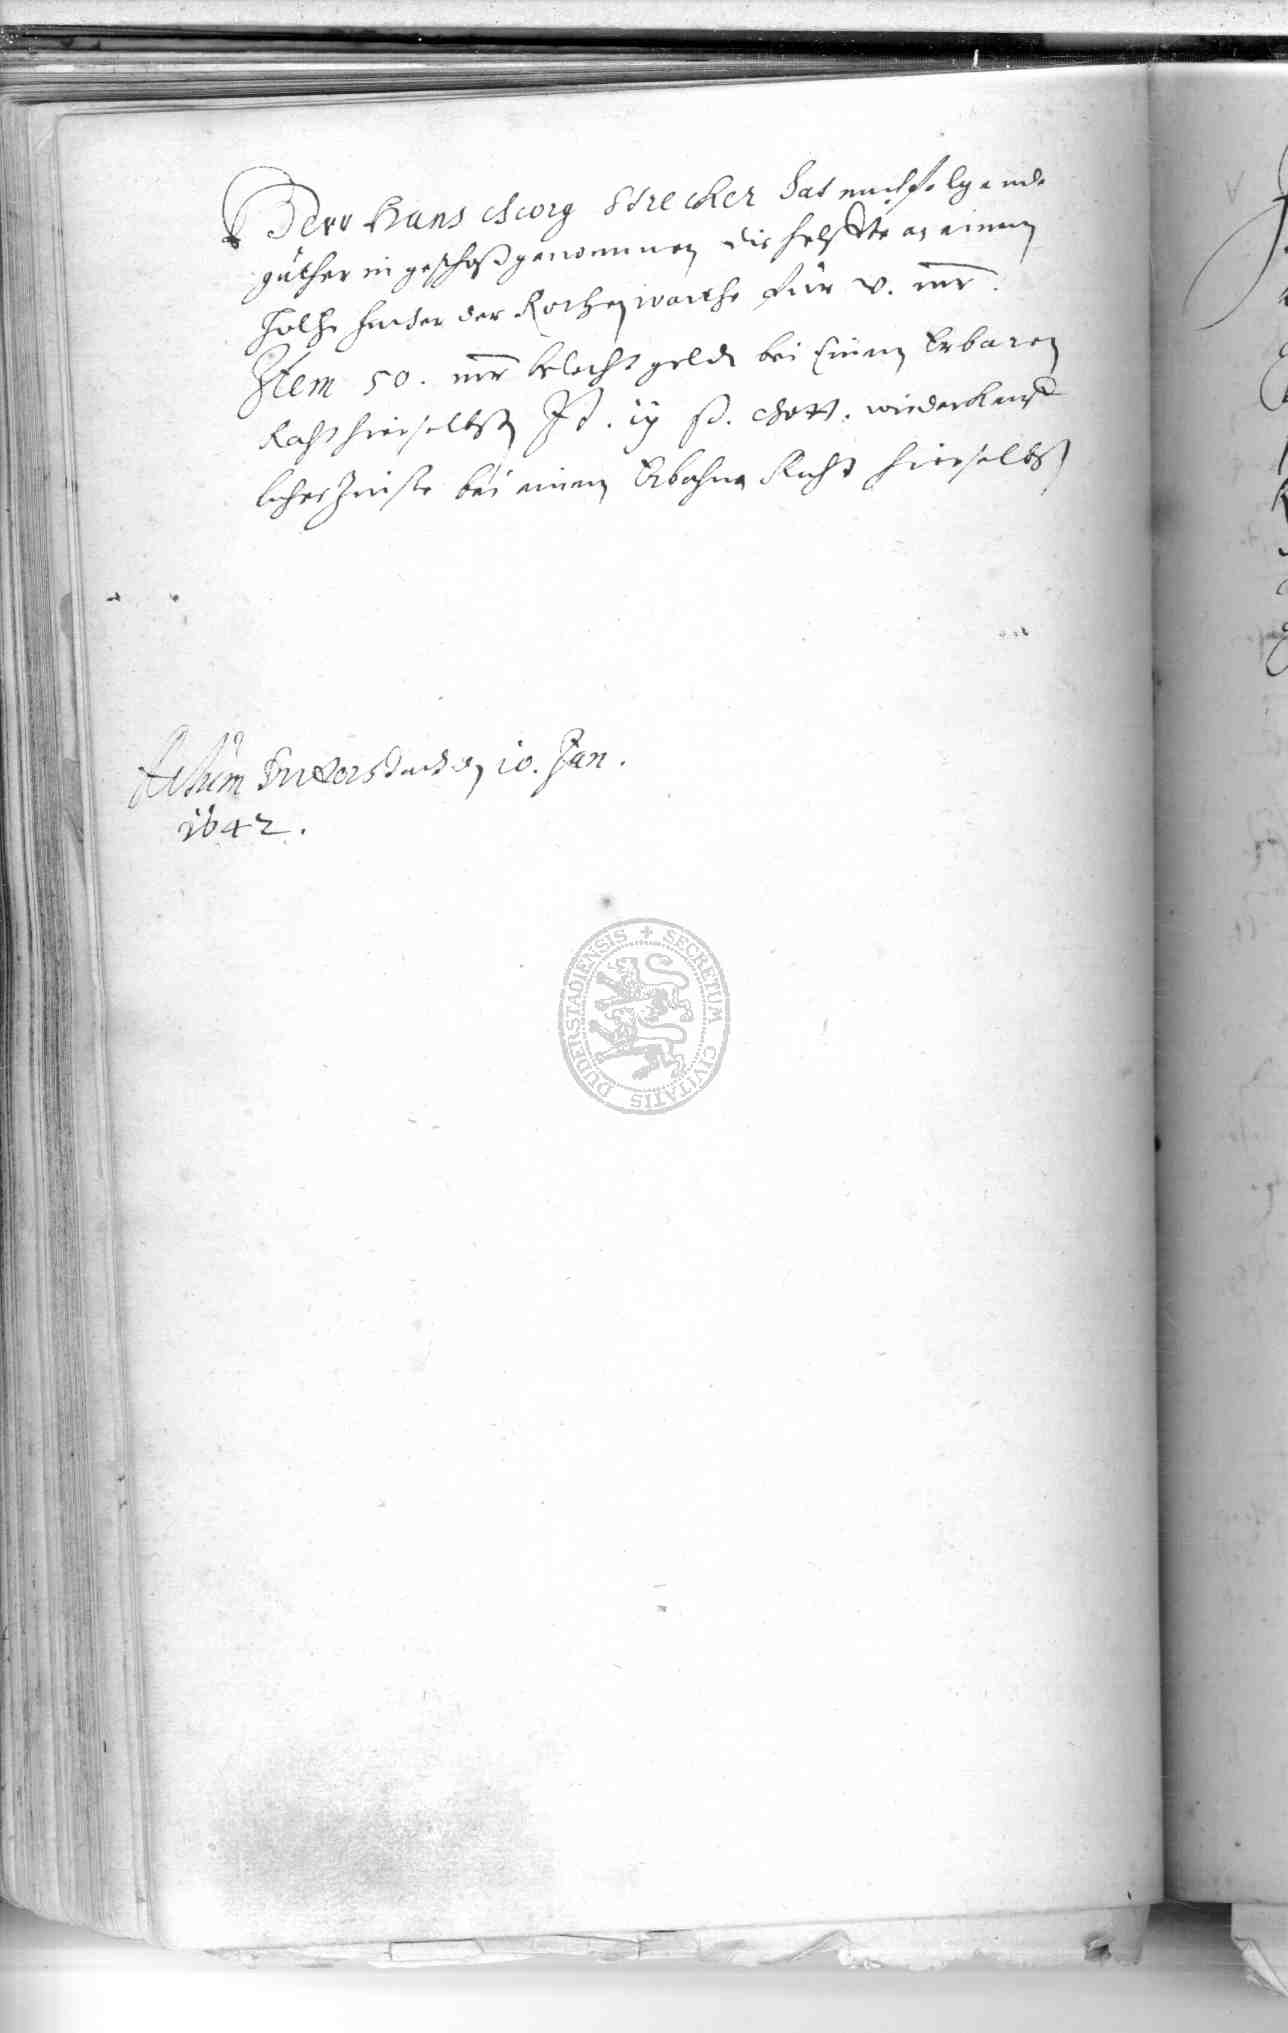 Herr Hans Georg Strecker hat nachfolgende
güther in geschoß genommen die helffte an einem
holtze hinder der Rothen warthe für v. mr.
Item 50. mr belecht geldt bei Einem Erbaren
Raht hierselbst It. ij ß. Gött. wiederkeuff
liches Zinse bei einem Erbahrn Raht hierselbst
Actum Duderstadt den 10. Jan.
1642.
DUDERSTADIENSIS + SECRETUM CIVITATIS